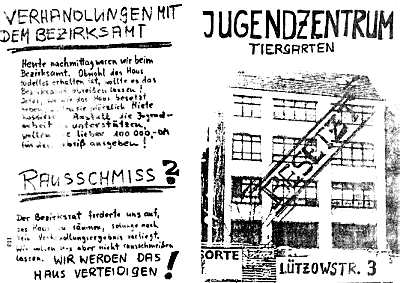 VERHANDLUNGEN MIT
DEM BEZIRKSAMT
Heute nachmittag waren wir beim
Bezirksamt. Obwohl das Haus
erhalten ist, wollte es das
das Haus besetzt
Miete
Anstatt die Jugend-
arbeit zu unterstützen,
lieber 100 000,-DM
für den Abriß ausgeben!
RAUSSCHMISS?
Der Bezirksrat forderte uns auf,
das Haus zu räumen, solange noch
kein Verhandlungsergebnis vorliegt.
Wir wollen uns aber nicht rausschmeißen
lassen. WIR WERDEN DAS
HAUS VERTEIDIGEN!
JUGENDZENTRUM
TIERGARTEN
BESETZT
ORTE
LÜTZOWSTR. 3